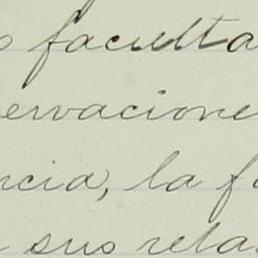 s faculta
ervacione
ncia, la f
sus rela